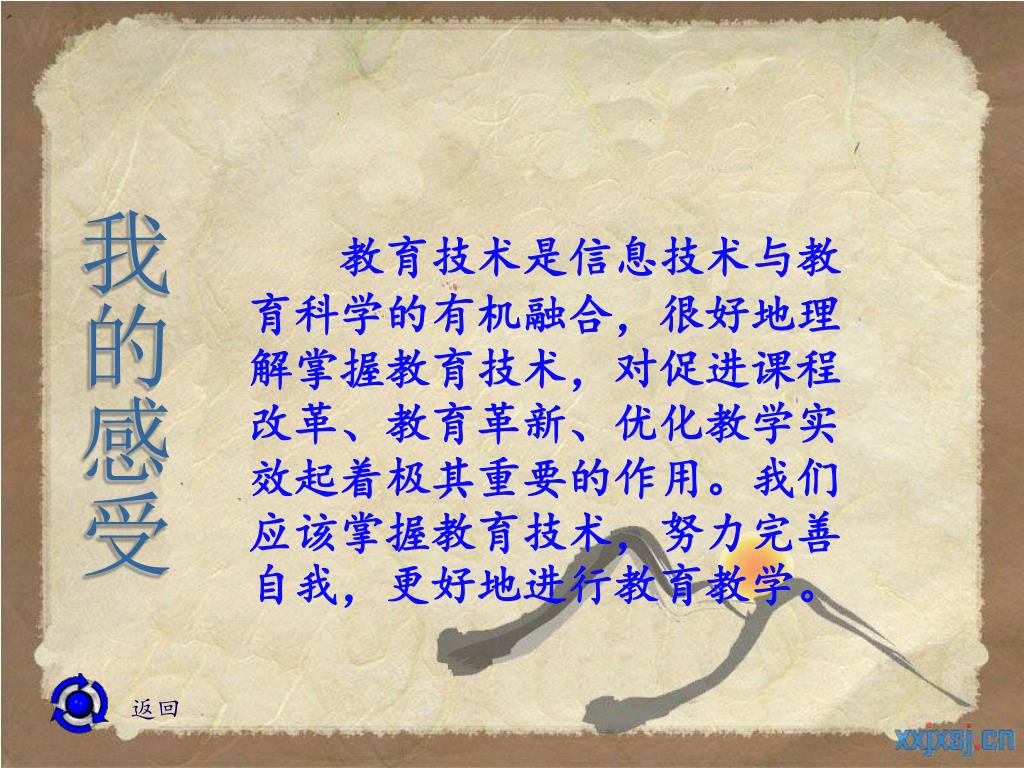 我的感受
教育技术是信息技术与教
育科学的有机融合，很好地理
解掌握教育技术，对促进课程
改革、教育革新、优化教学实
效起着极其重要的作用。我们
应该掌握教育技术，努力完善
自我，更好地进行教育教学。
返回
xxjxsj.cn